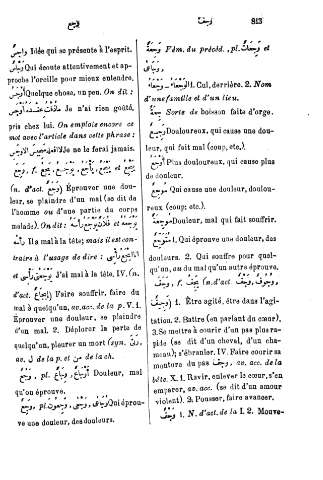 وجع
وجف
813
واجس Idée qui se présente à l'esprit.
Qui écoute attentivement et approche l'oreille pour mieux entendre.
أوجس Quelque chose, un peu. On dit :
Je n'ai rien goûté,
pris chez lui. On emploie encore ce
mot avec l'article dans cette phrase :
je ne le ferai jamais.
(n. d'act. وجع) Éprouver une douleur,
se plaindre d'un mal (se dit de
l'homme ou d'une partie du corps
malade). On dit :
Il a mal à la tête; mais il est contraire
à l'usage de dire :
J'ai mal à la tête. IV. (n.
d'act. إيجاع) Faire souffrir, faire du
mal à quelqu'un, av. acc. de la p. V. 1.
Éprouver une douleur, se plaindre
d'un mal. 2. Déplorer la perte de
quelqu'un, pleurer un mort (syn.
av. ل de la p. et من de la ch.
وجع, pl. أوجاع, وجاع Douleur, mal
qu'on éprouve.
وجع, pl. Qui éprouve
une douleur, des douleurs.
وجعة Fém. du précéd., pl. وجعات et
وجاعى
1. Cul, derrière. 2. Nom
d'une famille et d'un lieu.
جعة Sorte de boisson faite d'orge.
وجيع Douloureux, qui cause une douleur,
qui fait mal (coup, etc.).
أوجع Plus douloureux, qui cause plus
de douleur.
موجع Qui cause une douleur, douloureux
(coup, etc.).
Douleur, mal qui fait souffrir.
متوجع 1. Qui éprouve une douleur, des
douleurs. 2. Qui souffre pour quelqu'un,
ou du mal qu'un autre éprouve.
وجف, f. يجف, (n. d'act. وجف,
وجيف, وجوف) 1. Être agité, être dans l'agitation.
2. Battre (en parlant du cœur).
3. Se mettre à courir d'un pas plus rapide
(se dit d'un cheval, d'un chameau);
s'ébranler. IV. Faire courir sa
monture du pas وجيف, av. acc. de la
bête. X. 1. Ravir, enlever le cœur, s'en
emparer, acc. (se dit d'un amour
violent). 2. Pousser, faire avancer.
وجف 1. N. d'act. de la I. 2. Mouve-